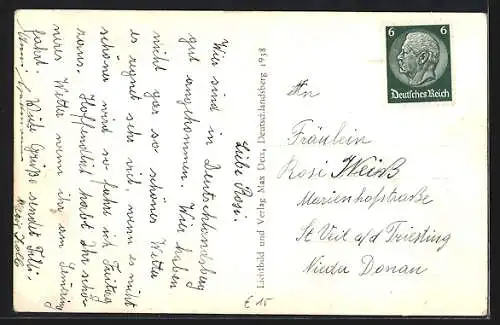 Liebe Rosi.
Wir sind in Deutschlandsberg
gut angekommen. Wir haben
nicht gar so schönes Wetter
es regnet sehr viel wenn es nicht
schöner wird so fahre ich Freitag
Hoffentlich habt Ihr schö-
neres Wetter wenn ihr am Semering
fahrt.
Viele Grüße sendet
Lichtbild und Verlag Max Dera, Deutschlandsberg 1938
6 6
Deutsches Reich
An
Fräulein
Rosi Weiß
Marienhofstraße
St Veit a/d Triesting
Nieder Donau
E 15